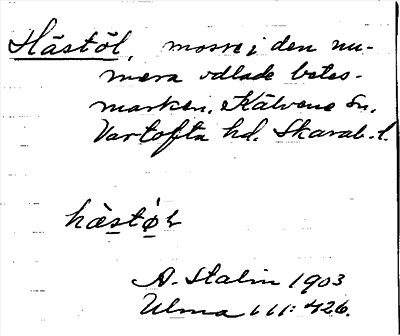 Hästöl, mosse i den nu-
mera odlade betes-
marken. Kälvene Sn.
Vartofta hd. Skarab. l.
hàstø̀l
A. Stalin 1903
Ulma 111: 426.